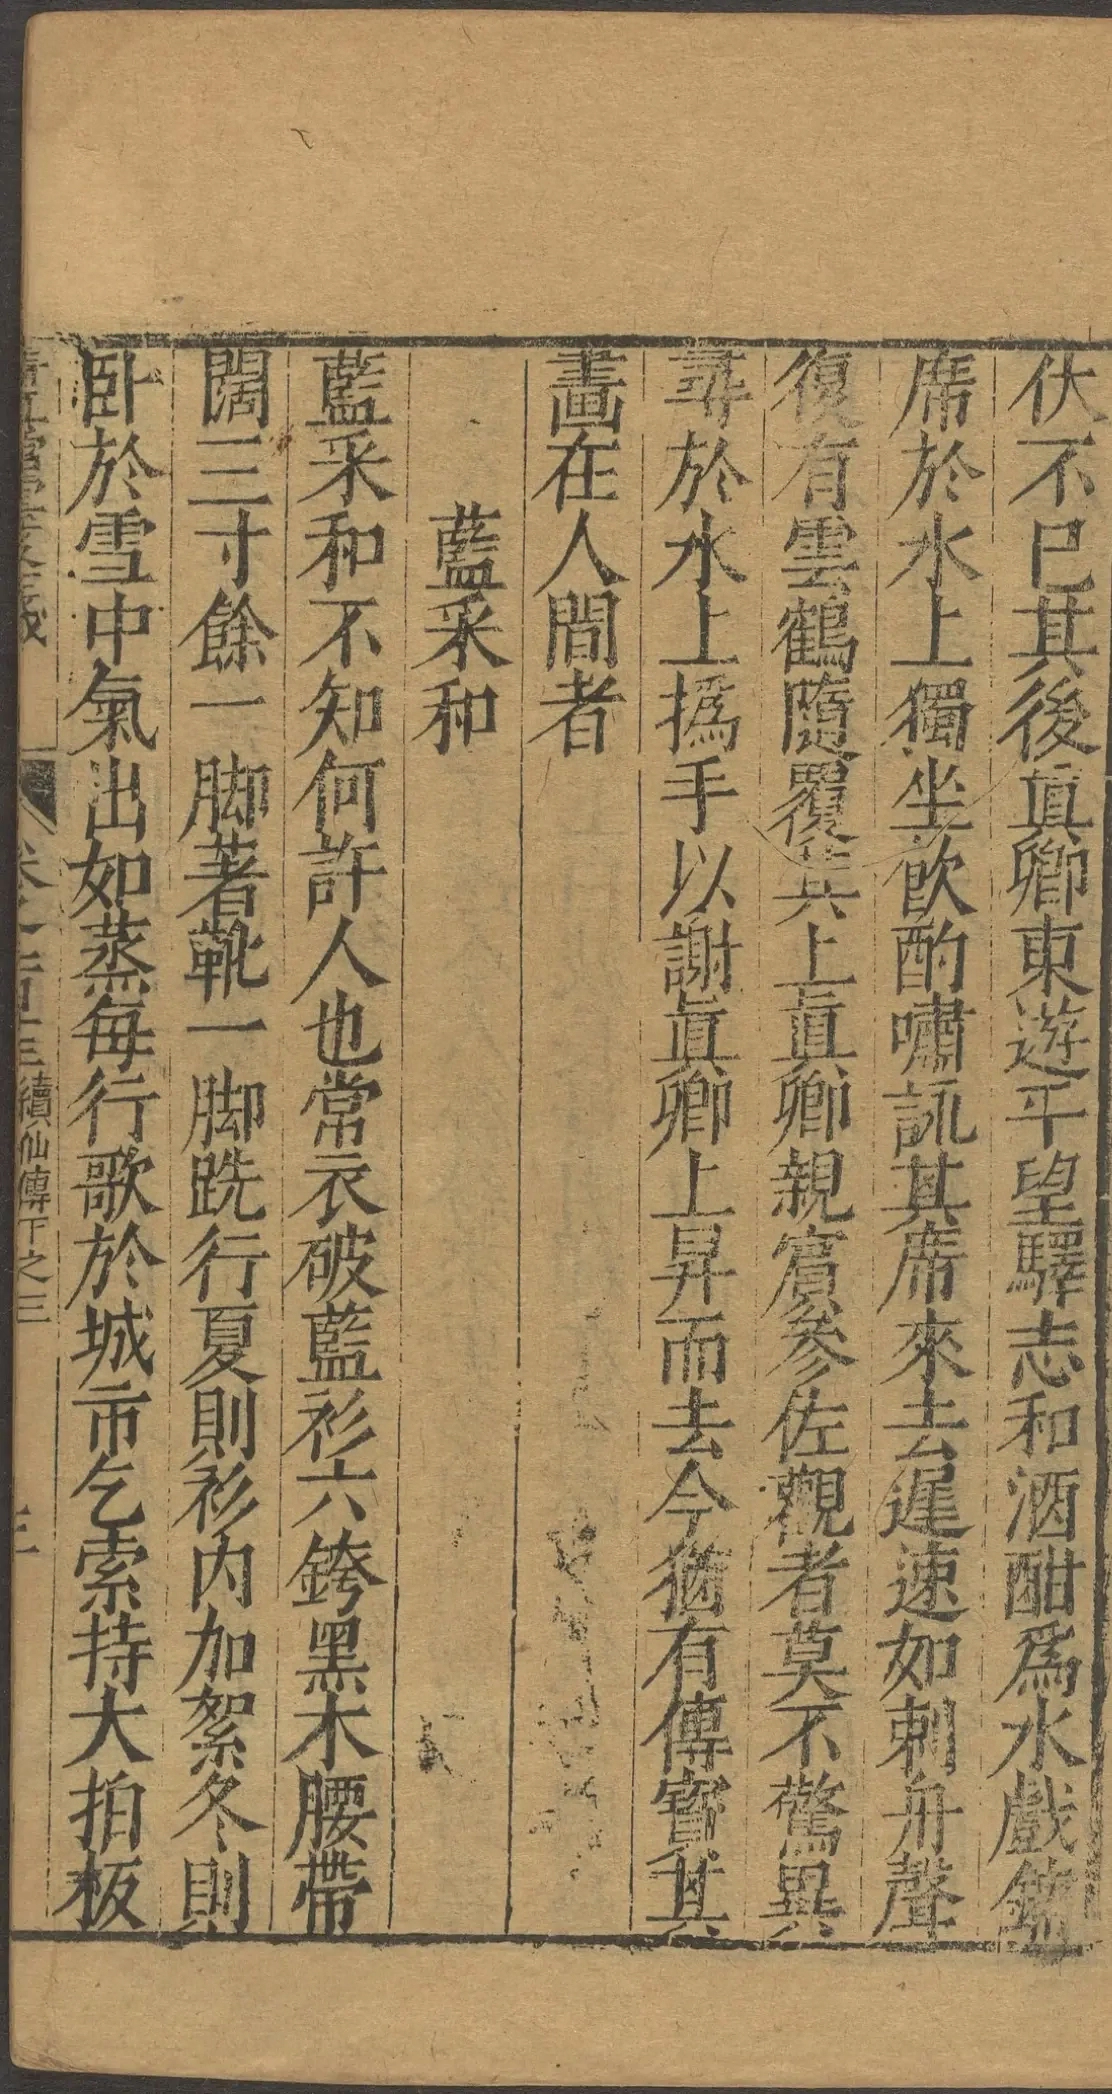 伏不已其後眞卿東遊平望驛志和酒酣爲水戲鋪
席於水上獨坐飮酌嘯詠其席來去遲速如刺舟聲
復有雲鶴隨覆其上眞卿親賓參佐觀者莫不驚異
尋於水上撝手以謝眞卿上昇而去今猶有傳寳其
畫在人間者
藍采和
藍采和不知何許人也常衣破藍衫六銙黑木腰帶
闊三寸餘一脚著靴一脚跣行夏則衫内加絮冬則
卧於雪中氣出如蒸每行歌於城市乞索持大拍板
卷之 續仙傳下之三
三